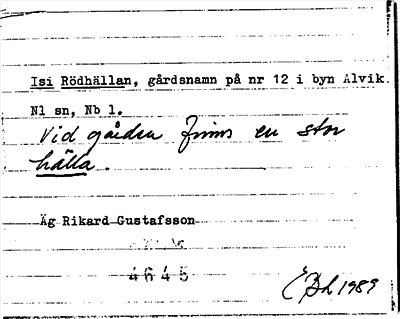 Isi Rödhällan, gårdsnamn på nr 12 i byn Alvik.
Nl sn, Nb l.
Vid gården finns en stor
hälla.
Äg Rikard Gustafsson
4645
EBh 1989